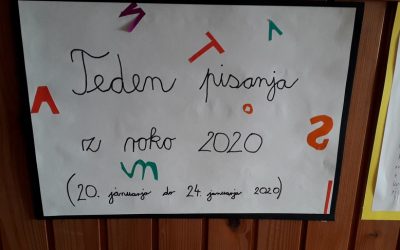 Teden pisanja
z roko 2020
(20. januarja do 24. januarja 2020)